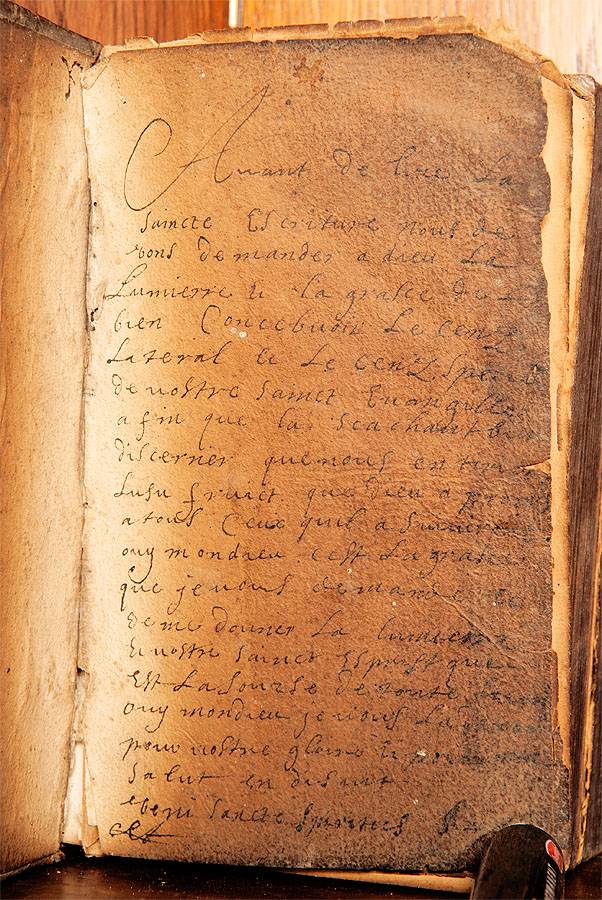 Avant de lire La
saincte Escriture nous de
vons demander a dieu La
Lumierre et la grasce de
bien Concebuoir Le cenz
Lateral et Le cenz
de vostre sainct Euangille
afin que la
discerner que nous en
Lusufruict que Dieu a
atous Ceux quil a
ouy mondieu cest La grasce
que je vous demande
deme donner La lumierre
et vostre sainct Esprist que
Est La sourse de toute
ouy mondieu je vous La
pour vostre gloire et pour mon
salut en disant
veni sancte spiritus